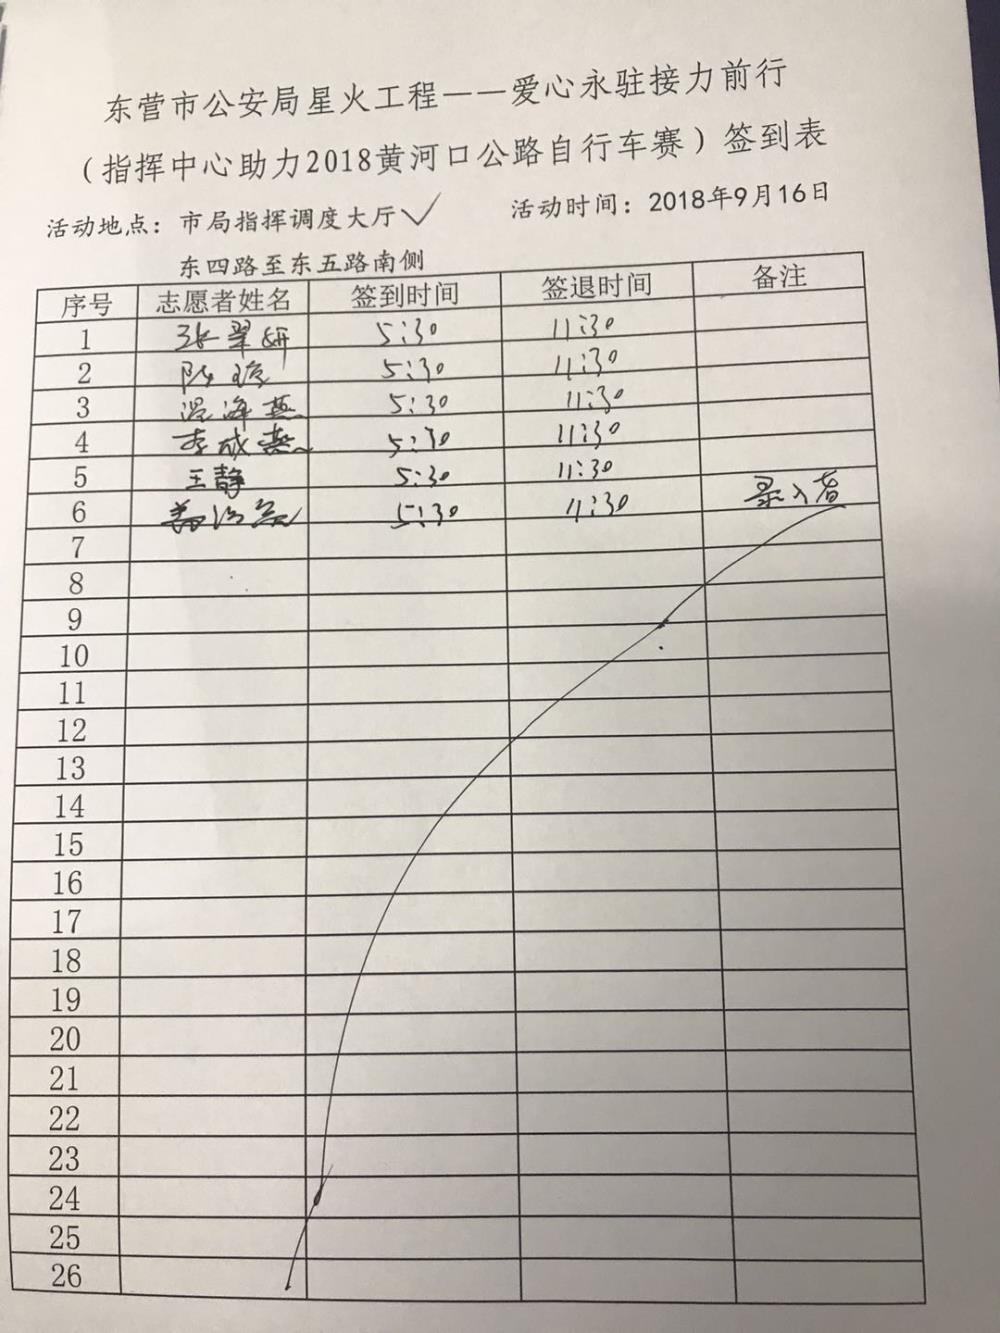 东营市公安局星火工程——爱心永驻接力前行
（指挥中心助力2018黄河口公路自行车赛）签到表
活动地点：市局指挥调度大厅✓ 活动时间：2018年9月16日
东四路至东五路南侧
序号 志愿者姓名 签到时间 签退时间 备注
1 张翠妍 5:30 11:30
2 5:30 11:30
3 温海燕 5:30 11:30
4 李成燕 5:30 11:30
5 王静 5:30 11:30
6 5:30 11:30 录入者
7
8
9
10
11
12
13
14
15
16
17
18
19
20
21
22
23
24
25
26